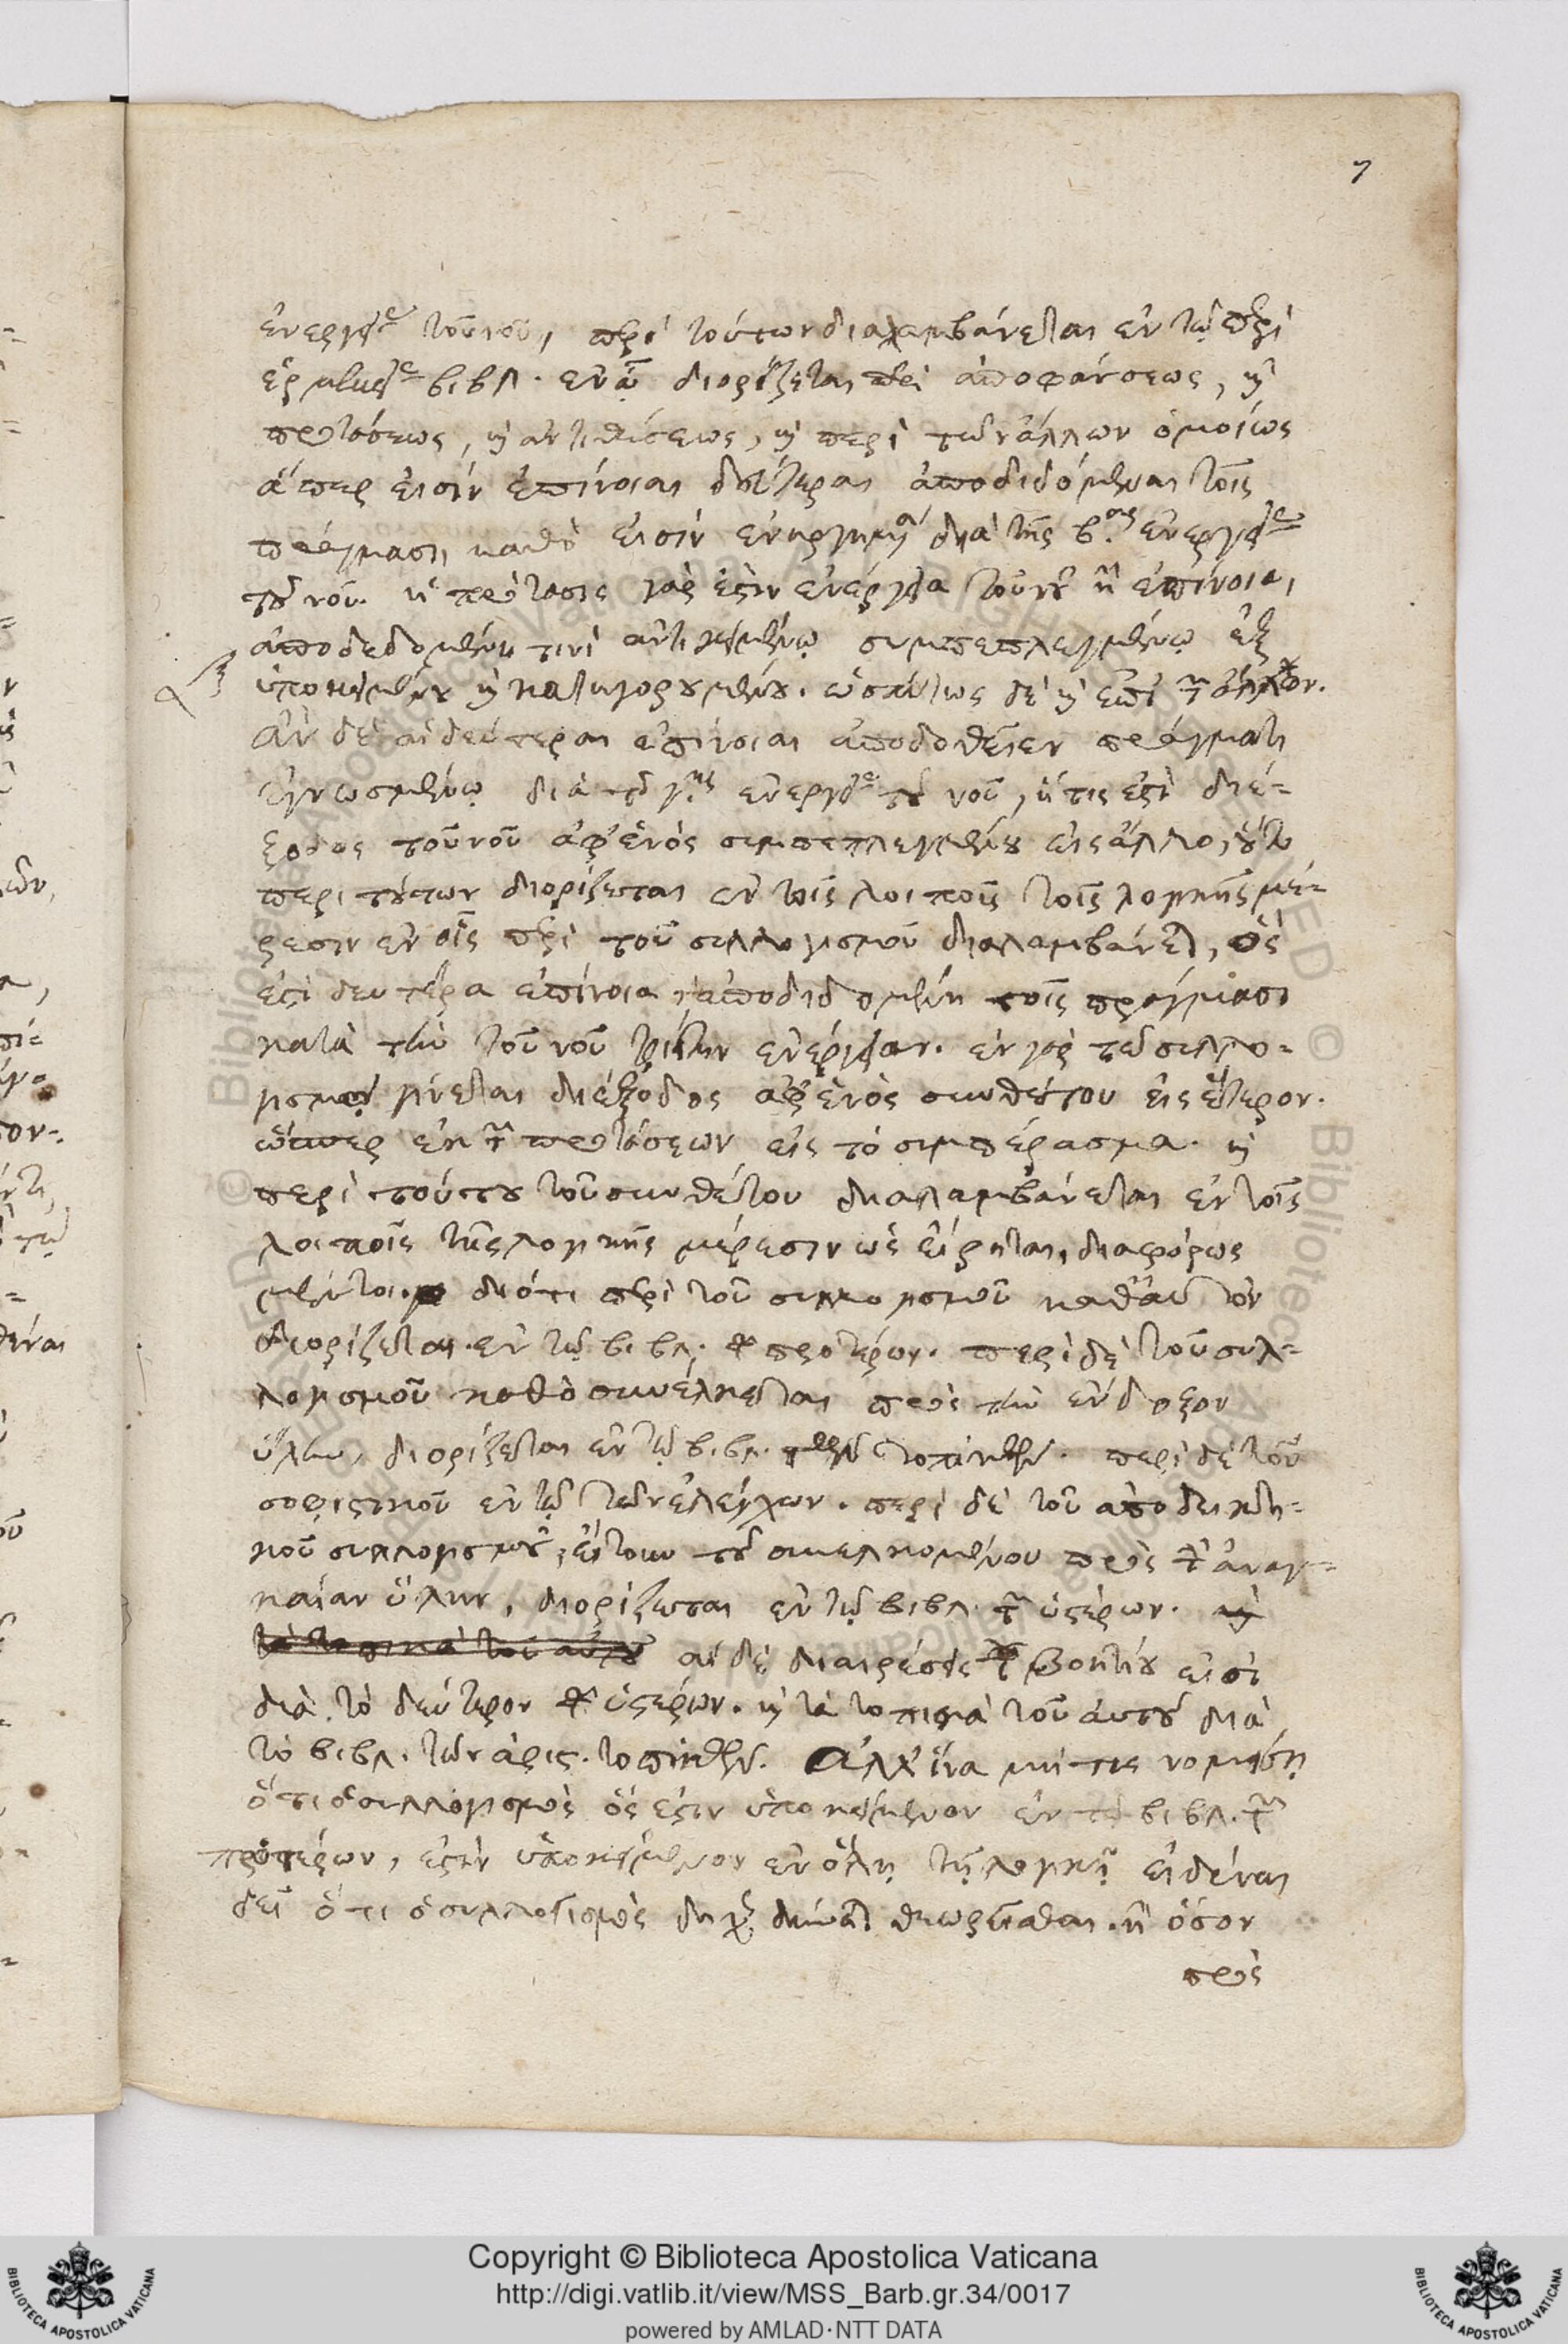 7
ἐνεργείας τοῦ νοῦ, περὶ τούτων διαλαμβάνεται ἐν τῷ περὶ
ἑρμηνείας βιβλ. ἐν ᾧ διορίζεται περὶ ἀποφάνσεως, καὶ
προτάσεως, καὶ ἀντιθέσεως, καὶ περὶ τῶν ἄλλων ὁμοίως
ἅπερ εἰσὶν ἐπίνοιαι δεύτεραι ἀποδιδόμεναι τοῖς
πράγμασι, καθὸ εἰσὶν διὰ τῆς β.ας ἐνεργείας
τοῦ νοῦ. ἡ πρότασις γάρ ἐστιν ἐνέργεια τοῦ νοῦ ἢ ἐπίνοια,
ἀποδεδομένη τινὶ ἀντικειμένῳ συμπεπλεγμένῳ ἐξ
ὑποκειμένου καὶ κατηγορουμένου. ὡσαύτως δὲ καὶ ἐπὶ τῶν ἄλλων.
ἂν δὲ αἱ δεύτεραι ἐπίνοιαι ἀποδοθεῖεν πράγματι
ἐγνωσμένῳ διὰ τῆς γ.ης ἐνεργείας τοῦ νοῦ, ἥτις ἐστὶ διέ-
ξοδος τοῦ νοῦ ἀφ' ἑνὸς συμπεπλεγμένου εἰς ἄλλο, οὕτω
περὶ τούτων διορίζεται ἐν τοῖς λοιποῖς τοῖς λογικῆς μέ-
ρεσιν ἐν οἷς περὶ τοῦ συλλογισμοῦ διαλαμβάνεται, ὅς
ἐστι δευτέρα ἐπίνοια ἀποδιδομένη τοῖς πράγμασι
κατὰ τὴν τοῦ νοῦ τρίτην ἐνέργειαν. ἐν γὰρ τῷ συλλο-
γισμῷ γίνεται διέξοδος ἀφ' ἑνὸς συνθέτου εἰς ἕτερον.
ὥσπερ ἐκ τῶν προτάσεων εἰς τὸ συμπέρασμα. καὶ
περὶ τούτου τοῦ συνθέτου διαλαμβάνεται ἐν τοῖς
λοιποῖς τῆς λογικῆς μέρεσιν ὡς εἴρηται, διαφόρως
μέντοι. διότι περὶ τοῦ συλλογισμοῦ καθ' αὑτὸν
διορίζεται ἐν τῷ βιβλ. τῶν προτέρων. περὶ δὲ τοῦ συλ-
λογισμοῦ καθὸ συνέλκεται πρὸς τὴν ἔνδοξον
ὕλην, διορίζεται ἐν τῷ βιβλ. τῶν τοπικῶν. περὶ δὲ τοῦ
σοφιστικοῦ ἐν τῷ τῶν ἐλέγχων. περὶ δὲ τοῦ ἀποδεικτι-
κοῦ συλλογισμοῦ, ἤτοι τοῦ συνελκομένου πρὸς τὴν ἀναγ-
καίαν ὕλην, διορίζεται ἐν τῷ βιβλ. τῶν ὑστέρων. καὶ
τὰ τοπικὰ τοῦ αὐτοῦ αἱ δὲ διαιρέσεις τοῦ βοητίου εἰσὶ
διὰ τὸ δεύτερον τῶν ὑστέρων. καὶ τὰ τοπικὰ τοῦ αὐτοῦ διὰ
τὸ βιβλ. τῶν ἀρις. τοπικῶν. ἀλλ' ἵνα μή τις νομίσῃ
ὅτι ὁ συλλογισμὸς ὅς ἐστιν ὑποκείμενον ἐν τῷ βιβλ. τῶν
προτέρων, ἐστὶν ὑποκείμενον ἐν ὅλῃ τῇ λογικῇ εἰδέναι
δεῖ ὅτι ὁ συλλογισμὸς διχῶς δύναται θεωρεῖσθαι. ἢ ὅσον
πρὸς
Copyright © Biblioteca Apostolica Vaticana
http://digi.vatlib.it/view/MSS_Barb.gr.34/0017
powered by AMLAD·NTT DATA
BIBLIOTECA APOSTOLICA VATICANA
BIBLIOTECA APOSTOLICA VATICANA